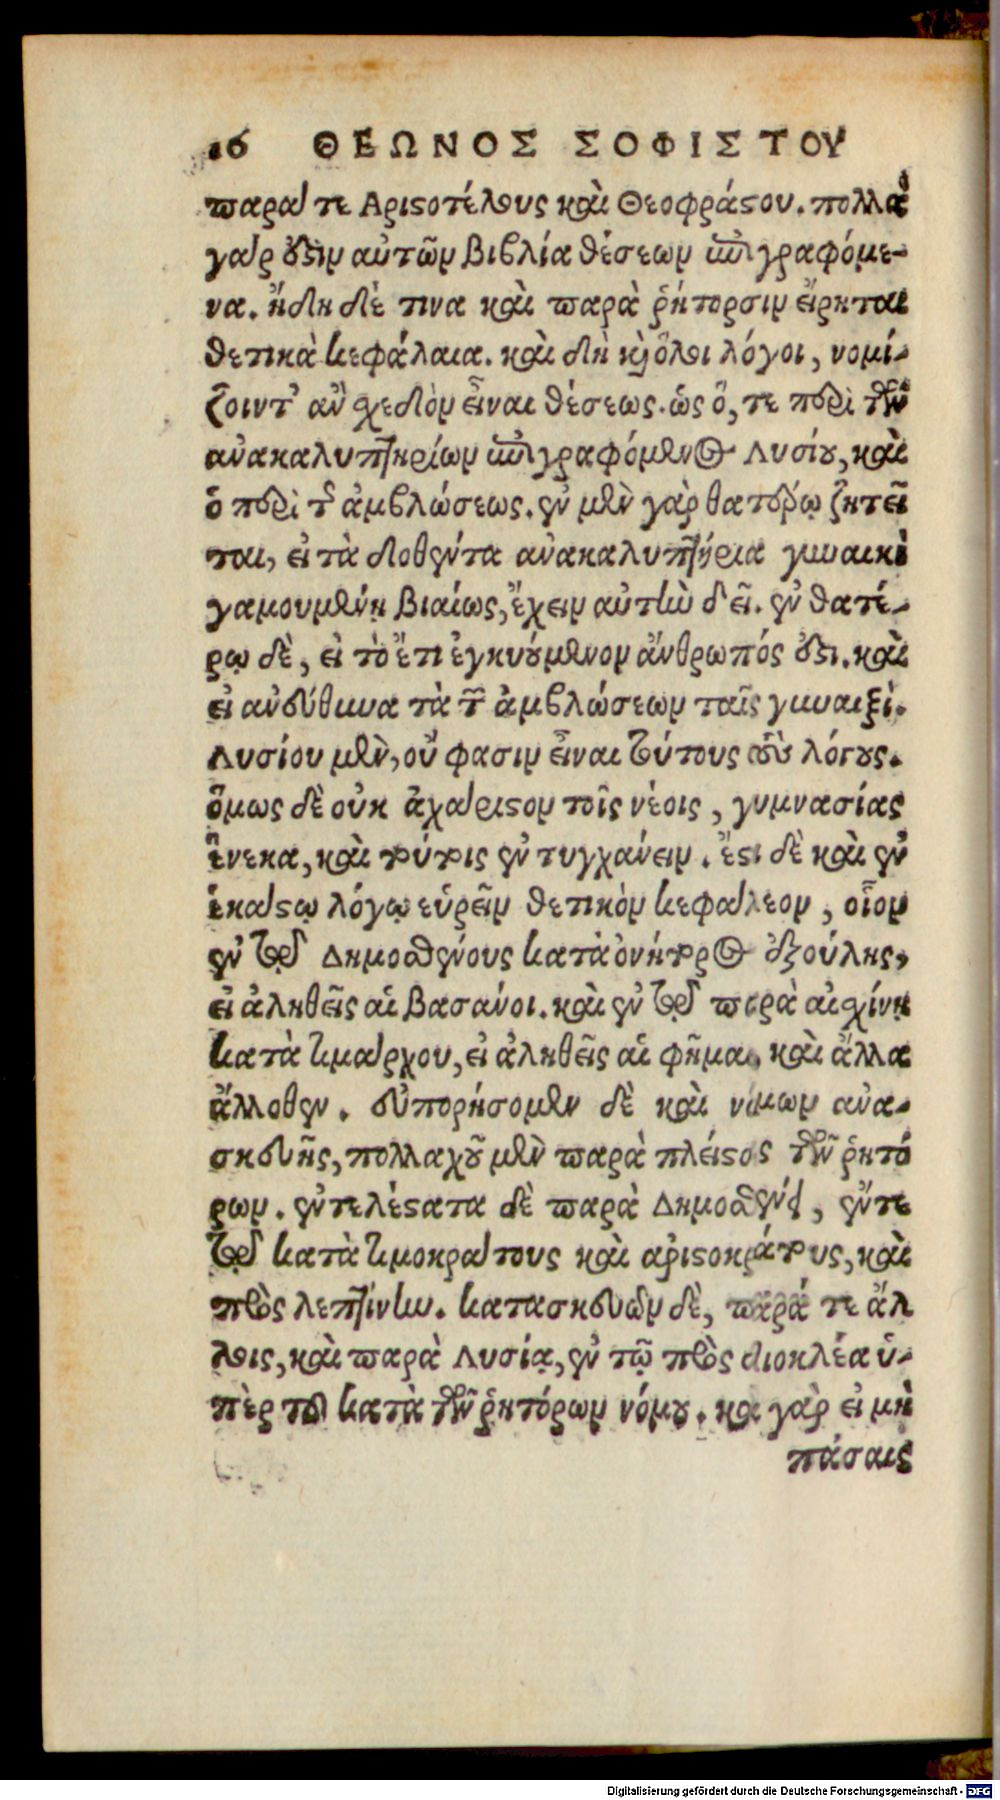 16 ΘΕΩΝΟΣ ΣΟΦΙΣΤΟΥ
παρά τε Αριστοτέλους καὶ Θεοφράστου. πολλὰ
γάρ ἐστιν αὐτῶν βιβλία θέσεων ἐπιγραφόμε-
να. ἤδη δὲ τινα καὶ παρὰ ῥήτορσιν εἴρηται
θετικὰ κεφάλαια. καὶ δὴ κỳ ὅλοι λόγοι, νομί-
ζοιντ᾽ ἂν σχεδὸν εἶναι θέσεως. ὡς ὅ, τε περὶ τῶν
ἀνακαλυπτηρίων ἐπιγραφόμενος Λυσίου, καὶ
ὁ περὶ τῆς ἀμβλώσεως. ἐν μὲν γὰρ θατέρῳ ζητεῖ
ται, εἰ τὰ δοθέντα ἀνακαλυπτήρια γυναικὶ
γαμουμένῃ βιαίως, ἔχειν αὐτὴν δεῖ. ἐν θατέ-
ρῳ δὲ, εἰ τὸ ἔτι ἐγκυούμενον ἄνθρωπός ἐστι. καὶ
εἰ ἀνεύθυνα τὰ τῶν ἀμβλώσεων ταῖς γυναιξὶ.
Λυσίου μὲν, οὔ φασιν εἶναι τούτους τοὺς λόγους.
ὅμως δὲ οὐκ ἀχάριστον τοῖς νέοις, γυμνασίας
ἕνεκα, καὶ τούτοις ἐντυγχάνειν. ἔστι δὲ καὶ ἐν
ἑκάστῳ λόγῳ εὑρεῖν θετικὸν κεφάλεον, οἷον
ἐν τῷ Δημοσθένους κατὰ ὀνήτορος ἐξούλης,
εἰ ἀληθεῖς αἱ βασάνοι. καὶ ἐν τῷ παρὰ αἰσχίνῃ
κατὰ τιμάρχου, εἰ ἀληθεῖς αἱ φῆμαι, καὶ ἄλλα
ἄλλοθεν. εὐπορήσομεν δὲ καὶ νόμων ἀνα-
σκευῆς, πολλαχοῦ μὲν παρὰ πλείστοις τῶν ῥητό
ρων. ἐντελέστατα δὲ παρὰ Δημοσθένει, ἔν τε
τῷ κατὰ τιμοκράτους καὶ ἀριστοκράτους, καὶ
πρὸς λεπτίνην. κατασκευῶν δὲ, παρά τε ἄλ
λοις, καὶ παρὰ Λυσίᾳ, ἐν τῷ πρὸς διοκλέα ὑ-
πὲρ τοῦ κατὰ τῶν ῥητόρων νόμου. καὶ γὰρ εἰ μὴ
πάσαις
Digitalisierung gefördert durch die Deutsche Forschungsgemeinschaft - DFG